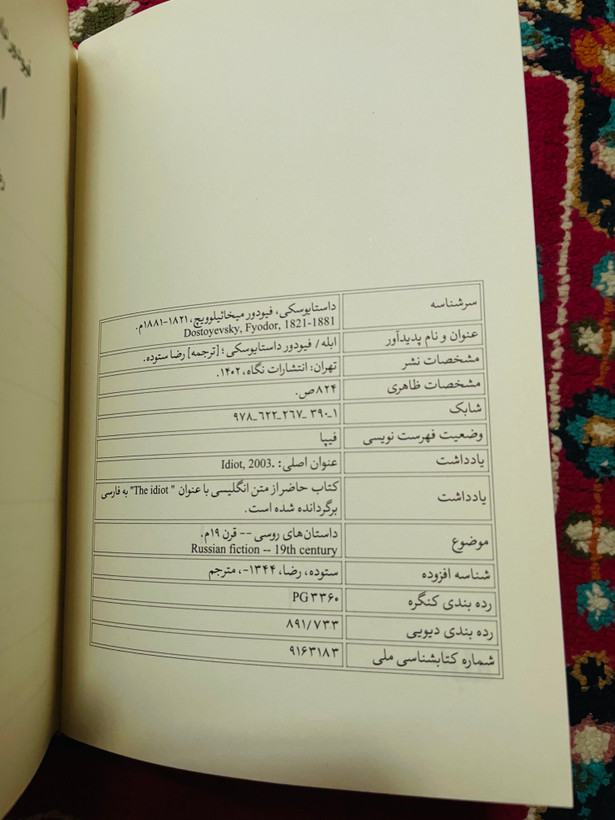 سرشناسه داستایوسکی، فیودور میخائیلوویچ، ۱۸۲۱-۱۸۸۱م.
Dostoyevsky, Fyodor, 1821-1881
عنوان و نام پدیدآور ابله / فیودور داستایوسکی؛ [ترجمه] رضا ستوده.
مشخصات نشر تهران: انتشارات نگاه، ۱۴۰۲.
مشخصات ظاهری ۸۲۴ص.
شابک ۹۷۸_۶۲۲_۲۶۷_۳۹۰_۱
وضعیت فهرست نویسی فیپا
یادداشت عنوان اصلی: .Idiot, 2003
یادداشت کتاب حاضر از متن انگلیسی با عنوان " The idiot" به فارسی
برگردانده شده است.
موضوع داستان‌های روسی -- قرن ۱۹م.
Russian fiction -- 19th century
شناسه افزوده ستوده، رضا، ۱۳۴۴-، مترجم
رده بندی کنگره PG۳۳۶۰
رده بندی دیویی ۸۹۱/۷۳۳
شماره کتابشناسی ملی ۹۱۶۳۱۸۳